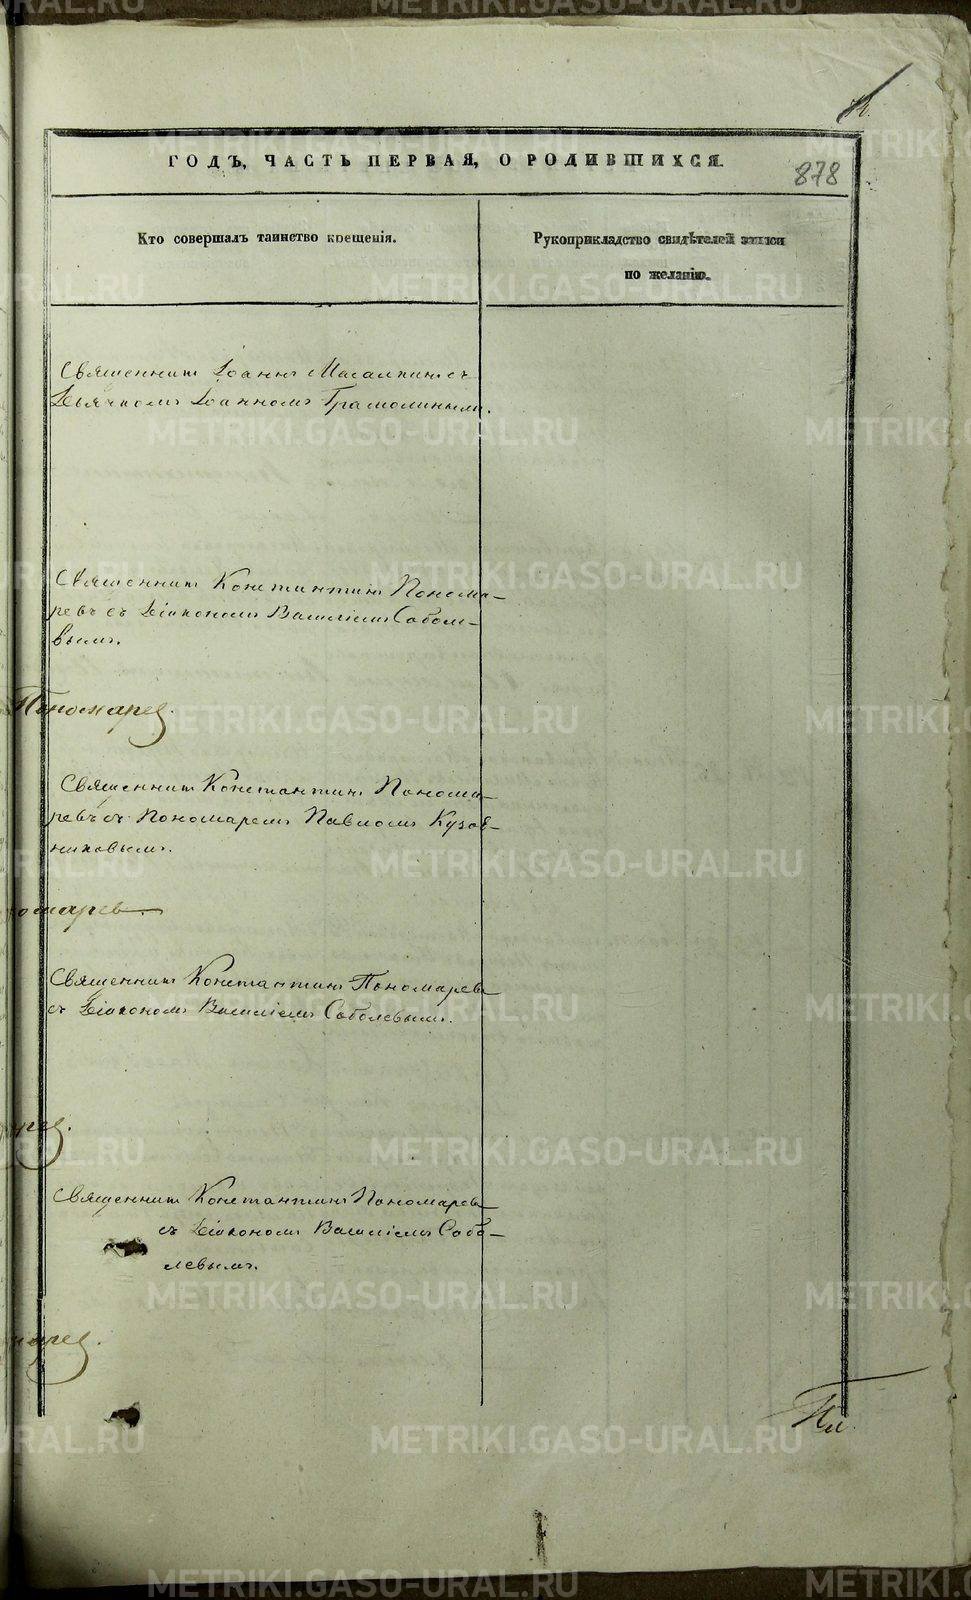 ГОДЪ, ЧАСТЬ ПЕРВАЯ, О РОДИВШИХСЯ.
878
Кто совершалъ таинство крещенія.
Рукоприкладство свидѣтелей записи
по желанію.
Священникъ Іоаннъ съ
Дьячкомъ Іоанномъ Грамолинымъ.
Священникъ Константинъ Понома-
ревъ съ Діакономъ Василіемъ Собол-
вымъ.
Пономарев.
Священникъ Константинъ Понома-
ревъ съ Пономаремъ Павломъ Кузов-
никовымъ.
омарев
Священникъ Константинъ Пономаревъ
съ Діакономъ Василіемъ Соболевымъ.
арев.
Священникъ Константинъ Пономаревъ
съ Діакономъ Василіемъ Собо-
левымъ.
марев.
METRIKI.GASO-URAL.RU